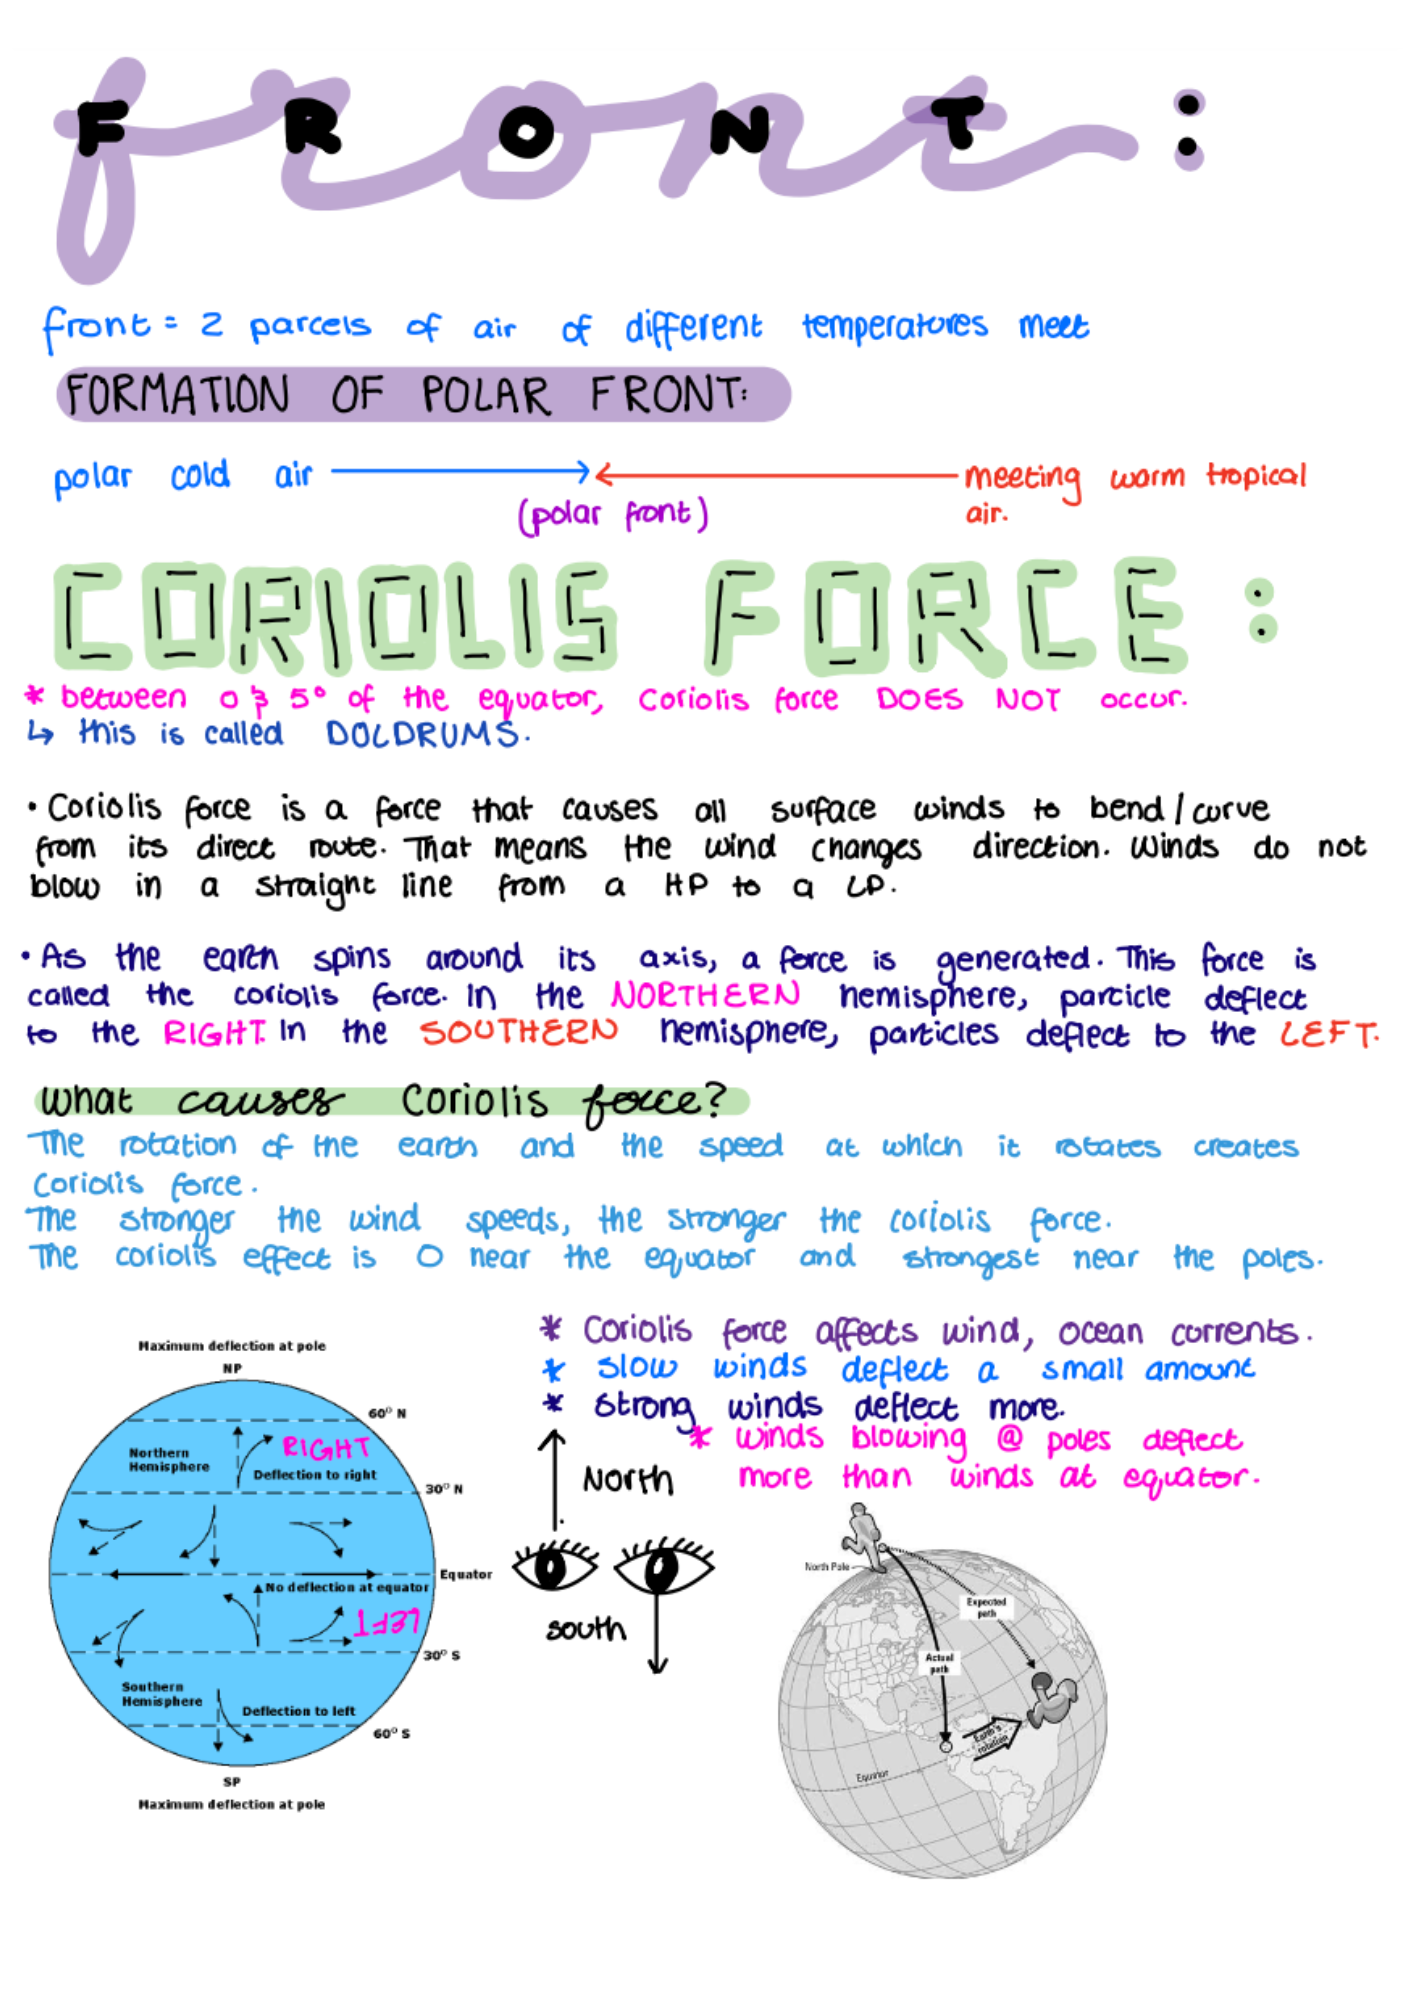 FRONT:
front = 2 parcels of air of different temperatures meet
FORMATION OF POLAR FRONT:
polar cold air → ← meeting warm tropical
air.
(polar front)
CORIOLIS FORCE:
* between 0 & 5° of the equator, Coriolis force DOES NOT occur.
↳ this is called DOLDRUMS.
• Coriolis force is a force that causes all surface winds to bend / curve
from its direct route. That means the wind changes direction. Winds do not
blow in a straight line from a HP to a LP.
• As the earth spins around its axis, a force is generated. This force is
called the coriolis force. In the NORTHERN hemisphere, particle deflect
to the RIGHT. In the SOUTHERN hemisphere, particles deflect to the LEFT.
What causes Coriolis force?
The rotation of the earth and the speed at which it rotates creates
Coriolis force.
The stronger the wind speeds, the stronger the coriolis force.
The coriolis effect is 0 near the equator and strongest near the poles.
* Coriolis force affects wind, ocean currents.
* slow winds deflect a small amount
* strong winds deflect more.
* winds blowing @ poles deflect
more than winds at equator.
North
south
Maximum deflection at pole
NP
60° N
Northern
Hemisphere
RIGHT
Deflection to right
30° N
Equator
No deflection at equator
LEFT
30° S
Southern
Hemisphere
Deflection to left
60° S
SP
Maximum deflection at pole
North Pole
Expected
path
Actual
path
Earth's
rotation
Equator